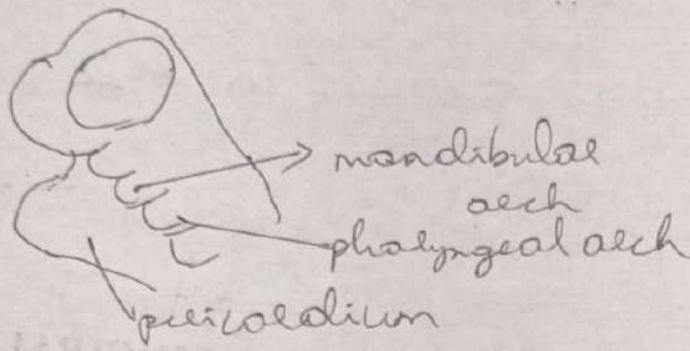 mandibular
arch
pharyngeal arch
pericardium